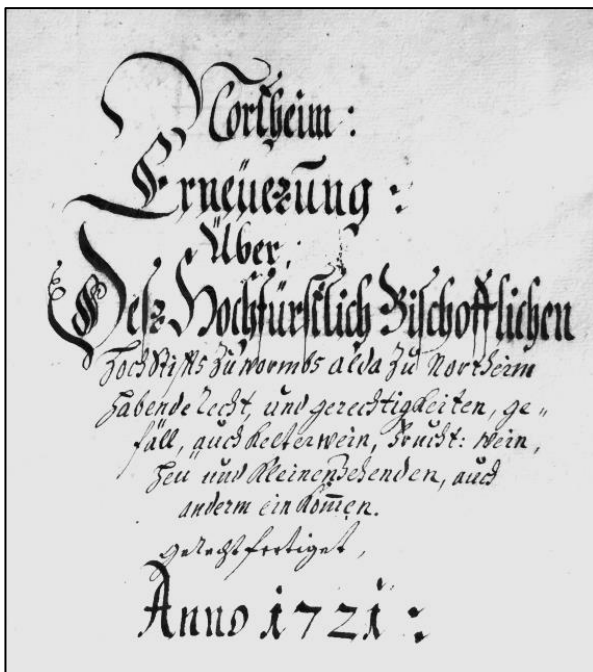 Northeim :
Erneüerung :
Über,
Desz Hochfürstlich Bischofflichen
Hochstiffts zu wormbs alda zu Northeim
habende recht, und gerechtigkeiten, ge„
fäll, auch kelterwein, frucht: wein,
heu und kleinenzehenden, auch
anderm einkom̅en.
gerechtfertiget,
Anno 1721 :